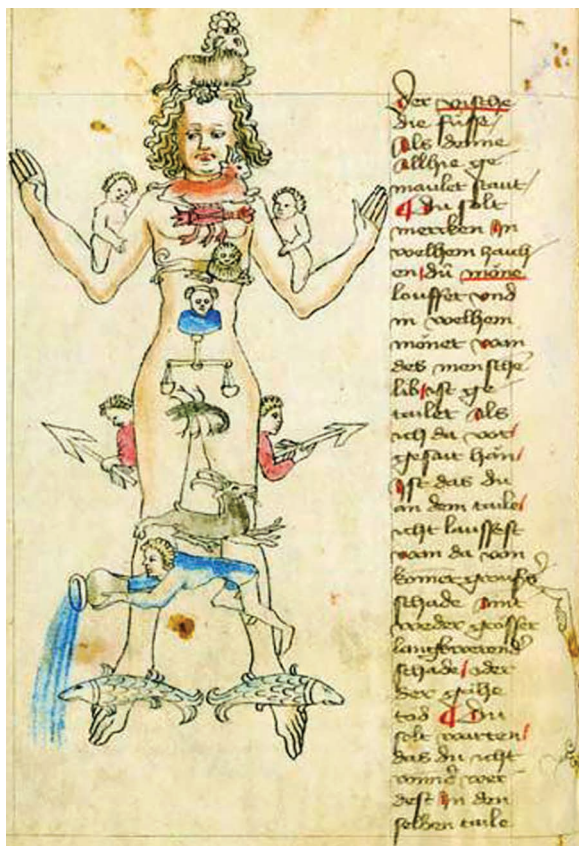 Der vische
die füsse
Als denne
Allhie ge
maulet staut
Du solt
mercken In
welhem zaich
en du mone
louffet vnd
in welhem
monet wan
des mensche
lib ist ge
tailet Als
ich da vor
gesait han
Ist das du
an dem taile
icht laussest
wan da von
komet grousz
schade
weder grosser
schade oder
der gähe
tod Du
solt warten
das du icht
wund wer
dest In dem
selben taile